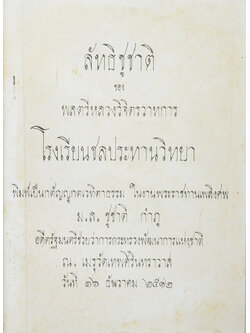 ลัทธิชูชาติ
ของ
พลตรีหลวงวิจิตรวาทการ
โรงเรียนชลประทานวิทยา
พิมพ์เป็นกตัญญูกตเวทิตาธรรม ในงานพระราชทานเพลิงศพ
ม.ล. ชูชาติ กำภู
อดีตรัฐมนตรีช่วยว่าการกระทรวงพัฒนาการแห่งชาติ
ณ. เมรุวัดเทพศิรินทราวาส
วันที่ ๑๖ ธันวาคม ๒๕๑๒